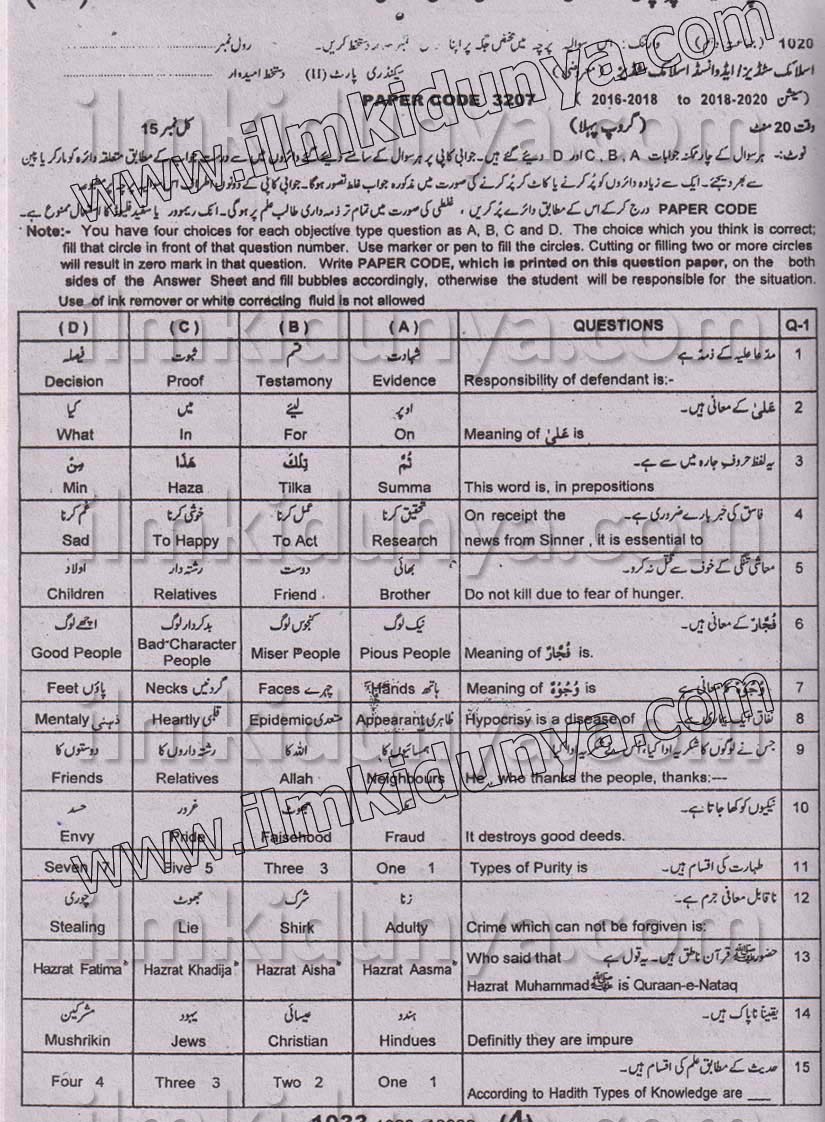 1020 (جماعت دہم) وارننگ: اس سوالیہ پرچہ میں مختص جگہ پر اپنا نمبر دستخط کریں۔ رول نمبر
اسلامک سٹڈیز/ایڈوانسڈ اسلامک سٹڈیز (معروضی) سیکنڈری پارٹ (II) دستخط امیدوار
(سیشن 2016-2018 to 2018-2020) PAPER CODE 3207
وقت 20 منٹ (گروپ پہلا) کل نمبر 15
نوٹ:- ہر سوال کے چار ممکنہ جوابات A، B، C اور D دیئے گئے ہیں۔ جوابی کاپی پر ہر سوال کے سامنے دیئے گئے دائروں میں سے درست جواب کے مطابق متعلقہ دائرہ کو مارکر یا پین
سے بھر دیجئے۔ ایک سے زیادہ دائروں کو پُر کرنے یا کاٹ کر پُر کرنے کی صورت میں مذکورہ جواب غلط تصور ہوگا۔ جوابی کاپی کے دونوں اطراف اس سوالیہ پرچہ پر مطبوعہ
PAPER CODE درج کر کے اس کے مطابق دائرے پُر کریں، غلطی کی صورت میں تمام تر ذمہ داری طالب علم پر ہوگی۔ انک ریموور یا سفید فلیوڈ کا استعمال ممنوع ہے۔
Note:- You have four choices for each objective type question as A, B, C and D. The choice which you think is correct;
fill that circle in front of that question number. Use marker or pen to fill the circles. Cutting or filling two or more circles
will result in zero mark in that question. Write PAPER CODE, which is printed on this question paper, on the both
sides of the Answer Sheet and fill bubbles accordingly, otherwise the student will be responsible for the situation.
Use of ink remover or white correcting fluid is not allowed
(D) (C) (B) (A) QUESTIONS Q-1
فیصلہ ثبوت قسم شہادت مدعا علیہ کے ذمہ ہے 1
Decision Proof Testamony Evidence Responsibility of defendant is:-
کیا میں لیئے اوپر عَلیٰ کے معانی ہیں۔ 2
What In For On Meaning of عَلیٰ is
مِنْ هَذَا تِلْكَ ثُمَّ یہ لفظ حروفِ جارہ میں سے ہے۔ 3
Min Haza Tilka Summa This word is, in prepositions
غم کرنا خوشی کرنا عمل کرنا تحقیق کرنا On receipt the فاسق کی خبر بارے ضروری ہے۔ 4
Sad To Happy To Act Research news from Sinner , it is essential to
اولاد رشتہ دار دوست بھائی معاشی تنگی کے خوف سے قتل نہ کرو۔ 5
Children Relatives Friend Brother Do not kill due to fear of hunger.
اچھے لوگ بدکردار لوگ کنجوس لوگ نیک لوگ فُجَّار کے معانی ہیں۔ 6
Good People Bad Character People Miser People Pious People Meaning of فُجَّارٌ is.
Feet پاؤں Necks گردنیں Faces چہرے Hands ہاتھ Meaning of وُجُوْهٌ is وُجُوْهٌ معانی ہے 7
Mentaly ذہنی Heartly قلبی Epidemic متعدی Appearant ظاہری Hypocrisy is a disease of نفاق ایک بیماری ہے۔ 8
دوستوں کا رشتہ داروں کا اللہ کا ہمسائیوں کا جس نے لوگوں کا شکریہ ادا کیا، اس نے شکریہ ادا کیا 9
Friends Relatives Allah Neighbours He , who thanks the people, thanks:---
حسد غرور جھوٹ نیکیوں کو کھا جاتا ہے۔ 10
Envy Pride Falsehood Fraud It destroys good deeds.
Seven 7 Five 5 Three 3 One 1 Types of Purity is طہارت کی اقسام ہیں۔ 11
چوری جھوٹ شرک زنا ناقابل معافی جرم ہے۔ 12
Stealing Lie Shirk Adulty Crime which can not be forgiven is:
Hazrat Fatima Hazrat Khadija Hazrat Aisha Hazrat Aasma Who said that حضور ﷺ قرآن ناطق ہیں۔ یہ قول ہے 13
Hazrat Muhammad ﷺ is Quraan-e-Nataq
مشرکین یہود عیسائی ہندو یقیناً ناپاک ہیں۔ 14
Mushrikin Jews Christian Hindues Definitly they are impure
Four 4 Three 3 Two 2 One 1 حدیث کے مطابق علم کی اقسام ہیں۔ 15
According to Hadith Types of Knowledge are ___
(4)
www.ilmkidunya.com
www.ilmkidunya.com
ilmkidunya.com
ilmkidunya.com
ilmkidunya.com
ilmkidunya.com
ilmkidunya.com